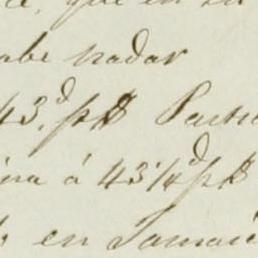 que en su
abe nadar
43,ᵈ p$ Parti
ina á 43¼ᵈ p$
en Jamai